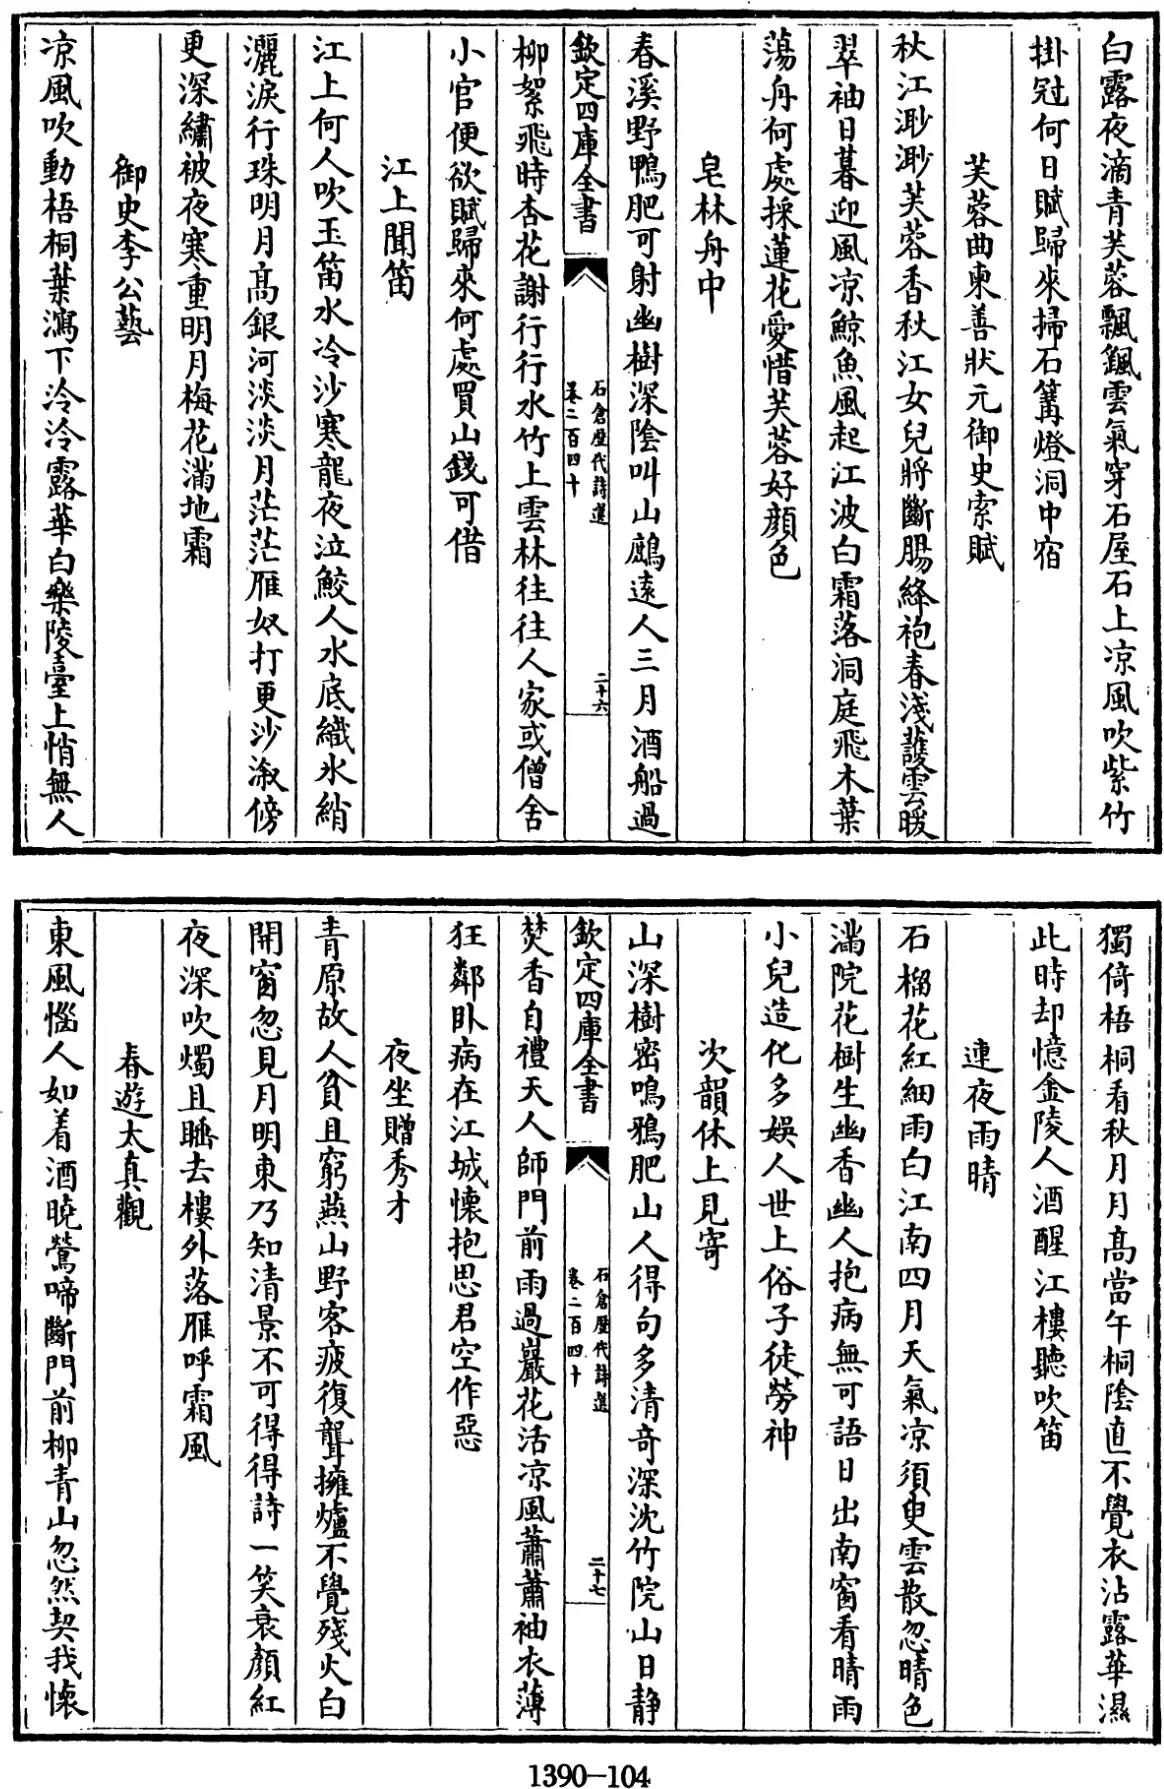 白露夜滴青芙蓉飄飄雲氣穿石屋石上凉風吹紫竹
掛冠何日賦歸來掃石篝燈洞中宿
芙蓉曲柬善狀元御史索賦
秋江渺渺芙蓉香秋江女兒將斷腸絳袍春淺護雲暖
翠袖日暮迎風凉鯨魚風起江波白霜落洞庭飛木葉
蕩舟何處採蓮花愛惜芙蓉好顔色
皂林舟中
春溪野鴨肥可射幽樹深陰叫山鷓逺人三月酒船過
欽定四庫全書
石倉歷代詩選
卷二百四十
二十六
柳絮飛時杏花謝行行水竹上雲林往往人家或僧舍
小官便欲賦歸來何處買山錢可借
江上聞笛
江上何人吹玉笛水冷沙寒龍夜泣鮫人水底織氷綃
灑淚行珠明月髙銀河淡淡月茫茫雁奴打更沙溆傍
更深繡被夜寒重明月梅花滿地霜
御史李公藝
凉風吹動梧桐葉瀉下泠泠露華白樂陵臺上悄無人
獨倚梧桐看秋月月髙當午桐陰直不覺衣沾露華濕
此時却憶金陵人酒醒江樓聽吹笛
連夜雨晴
石榴花紅細雨白江南四月天氣凉須臾雲散忽晴色
滿院花樹生幽香幽人抱病無可語日出南窗看晴雨
小兒造化多娛人世上俗子徒勞神
次韻休上見寄
山深樹密鳴鴉肥山人得句多清奇深沈竹院山日静
欽定四庫全書
石倉歷代詩選
卷二百四十
二十七
焚香自禮天人師門前雨過巖花活凉風蕭蕭袖衣薄
狂鄰卧病在江城懷抱思君空作惡
夜坐贈秀才
青原故人貧且窮燕山野客疲復聾擁爐不覺殘火白
開窗忽見月明東乃知清景不可得得詩一笑衰顔紅
夜深吹燭且睡去樓外落雁呼霜風
春遊太真觀
東風惱人如着酒曉鶯啼斷門前柳青山忽然契我懷
1390—104